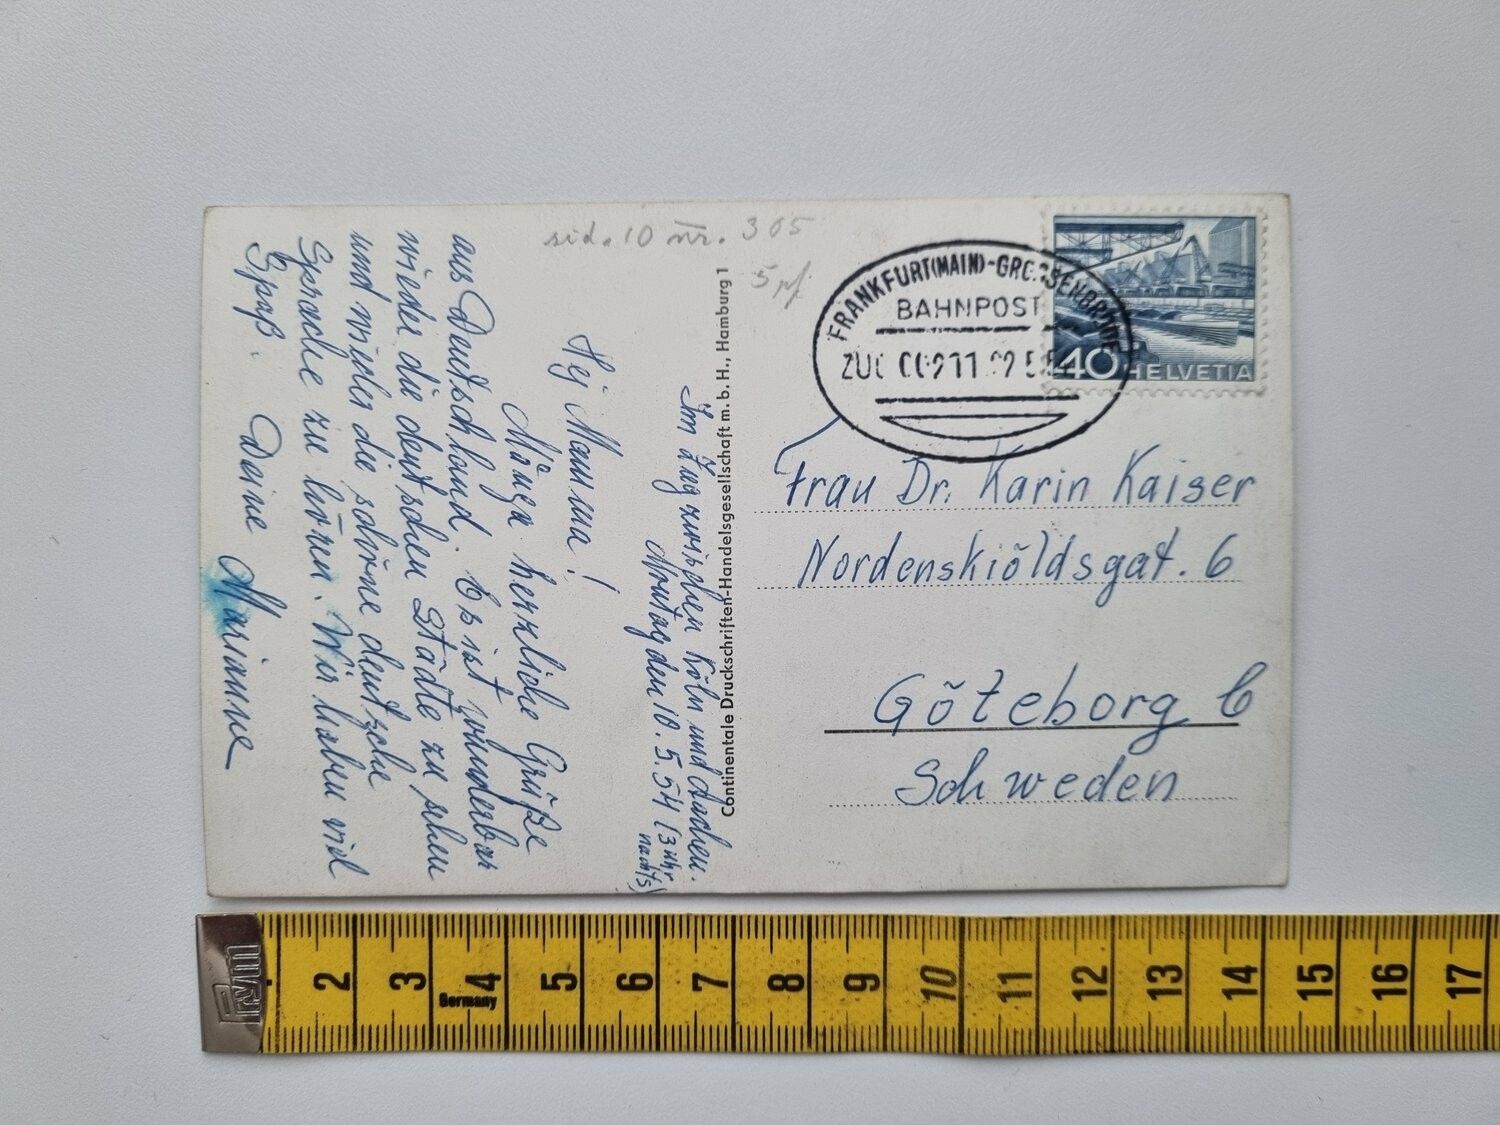 sid. 10 nr. 305
5 pf
Im Zug zwischen Köln und Aachen.
Montag den 10.5.54 (3 uhr
nachts)
Hej Mamma!
Många herzliche Grüße
aus Deutschland. Es ist wunderbar
wieder die deutschen Städte zu sehen
und wieder die schöne deutsche
Sprache zu hören. Wir haben viel
Spaß. Deine Marianne
Continentale Druckschriften-Handelsgesellschaft m. b. H., Hamburg 1
FRANKFURT(MAIN)-GROSSENBRODE
BAHNPOST
ZUG
40 HELVETIA
Frau Dr. Karin Kaiser
Nordenskiöldsgat. 6
Göteborg C
Schweden
2 3 4 5 6 7 8 9 10 11 12 13 14 15 16 17
Germany